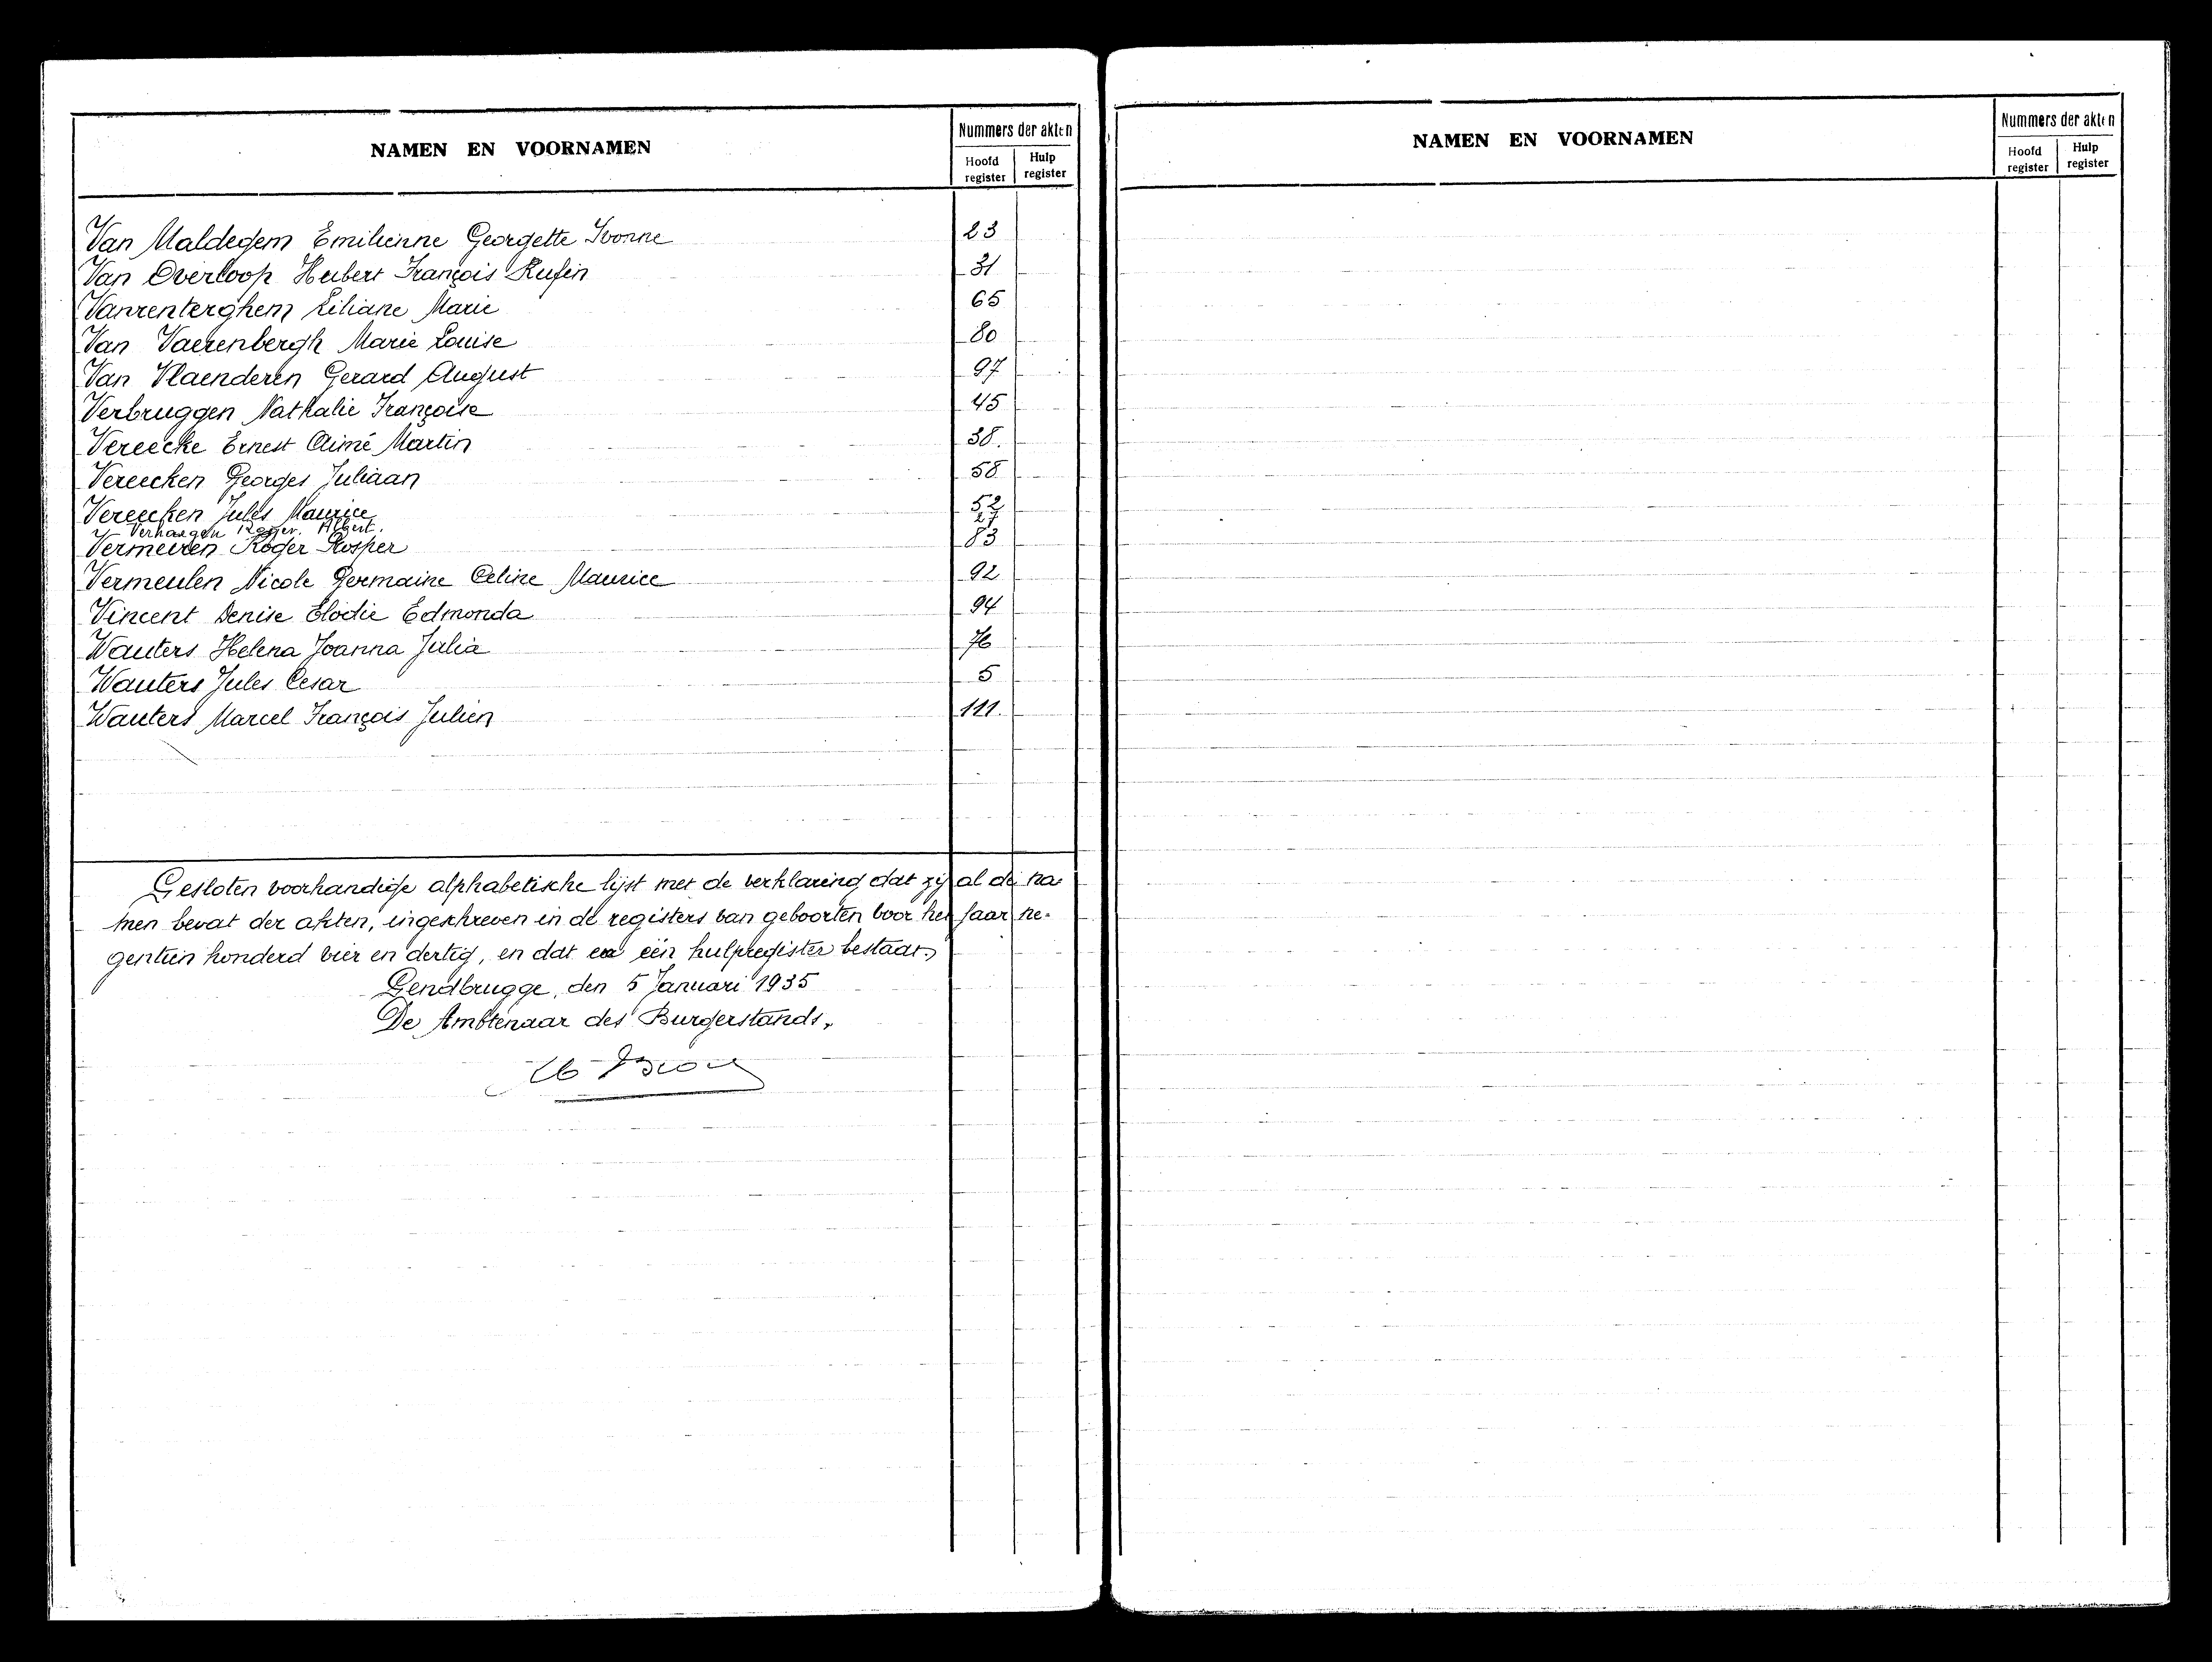 NAMEN EN VOORNAMEN
Nummers der akten
Hoofd register
Hulp register
Van Maldegem Emilienne Georgette Yvonne 23
Van Overloop Hubert François Rufin 31
Vanrenterghem Liliane Marie 65
Van Vaerenbergh Marie Louise 80
Van Vlaenderen Gerard August 97
Verbruggen Nathalie Françoise 45
Vereecke Ernest Aimé Martin 38.
Vereecken Georges Juliaan 58
Vereecken Jules Maurice 52
Verhaegen Roger Albert. 27
Vermeiren Roger Prosper 83
Vermeulen Nicole Germaine Celine Maurice 92
Vincent Denise Elodie Edmonda 94
Wauters Helena Joanna Julia 76
Wauters Jules Cesar 5
Wauters Marcel François Julien 111.
Gesloten voorhandige alphabetische lijst met de verklaring dat zij al de na-
men bevat der akten, ingeschreven in de registers van geboorten voor het jaar ne-
gentien honderd vier en dertig, en dat een hulpregister bestaat.
Gendbrugge, den 5 Januari 1935
De Ambtenaar des Burgerstands,
NAMEN EN VOORNAMEN
Nummers der akten
Hoofd register
Hulp register